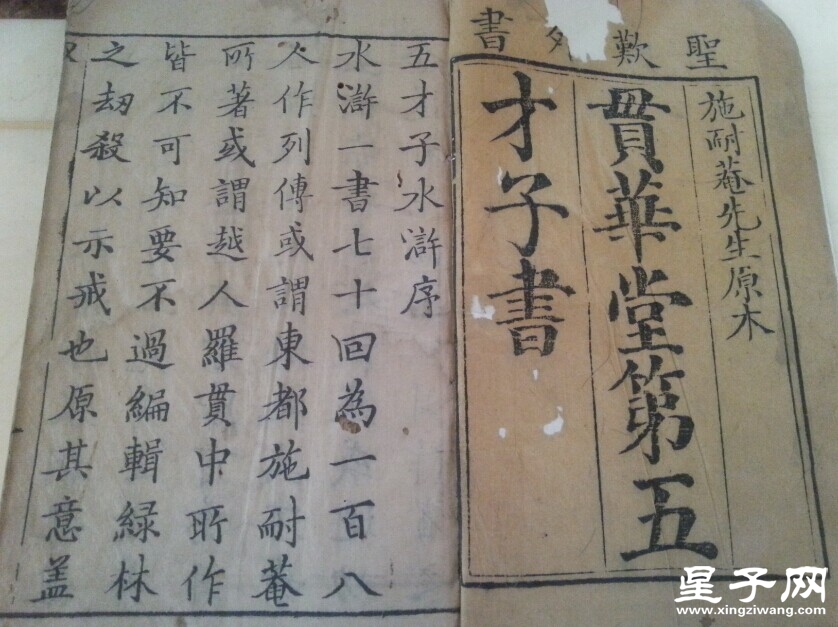 聖歎外書
施耐菴先生原本
貫華堂第五
才子書
五才子水滸序
水滸一書七十回為一百八
人作列傳或謂東都施耐菴
所著或謂越人羅貫中所作
皆不可知要不過編輯綠林
之刼殺以示戒也原其意盖
星子网
www.xingziwang.com